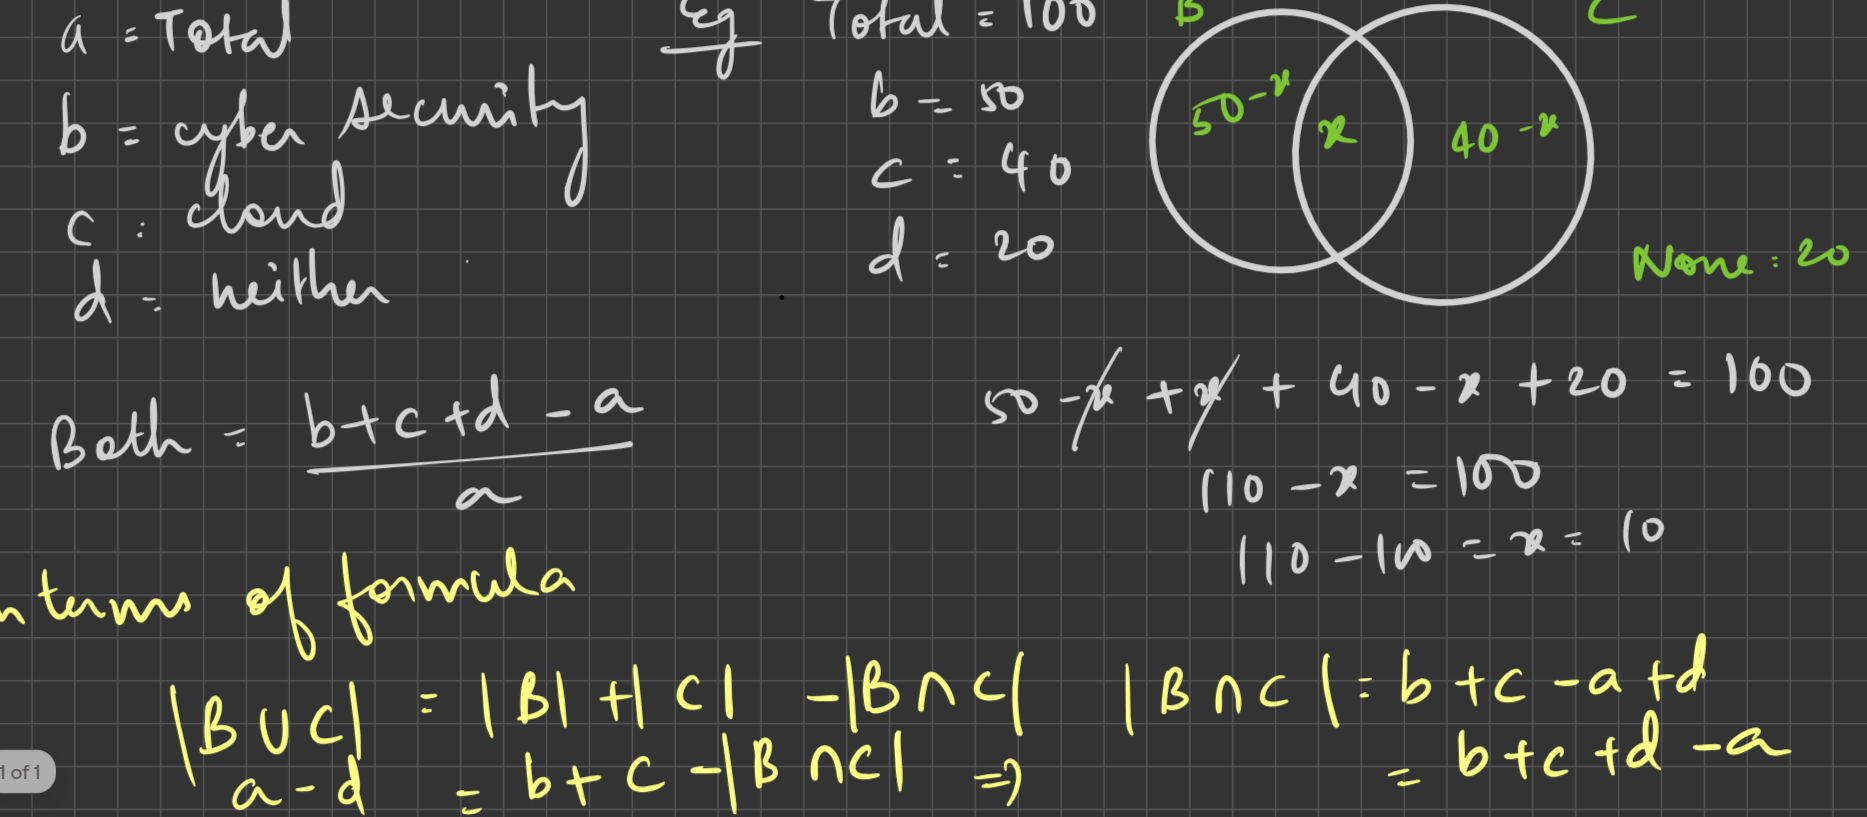 a = Total
b = cyber security
c = cloud
d = neither
Eg
Total = 100
b = 50
c = 40
d = 20
B
C
50-x
x
40-x
None = 20
Both = b+c+d-a
a
50 - x + x + 40 - x + 20 = 100
110 - x = 100
110 - 100 = x = 10
n terms of formula
|B ∪ C| = |B| + |C| - |B ∩ C|
a - d = b + c - |B ∩ C| ⇒
|B ∩ C| = b + c - a + d
= b + c + d - a
1 of 1